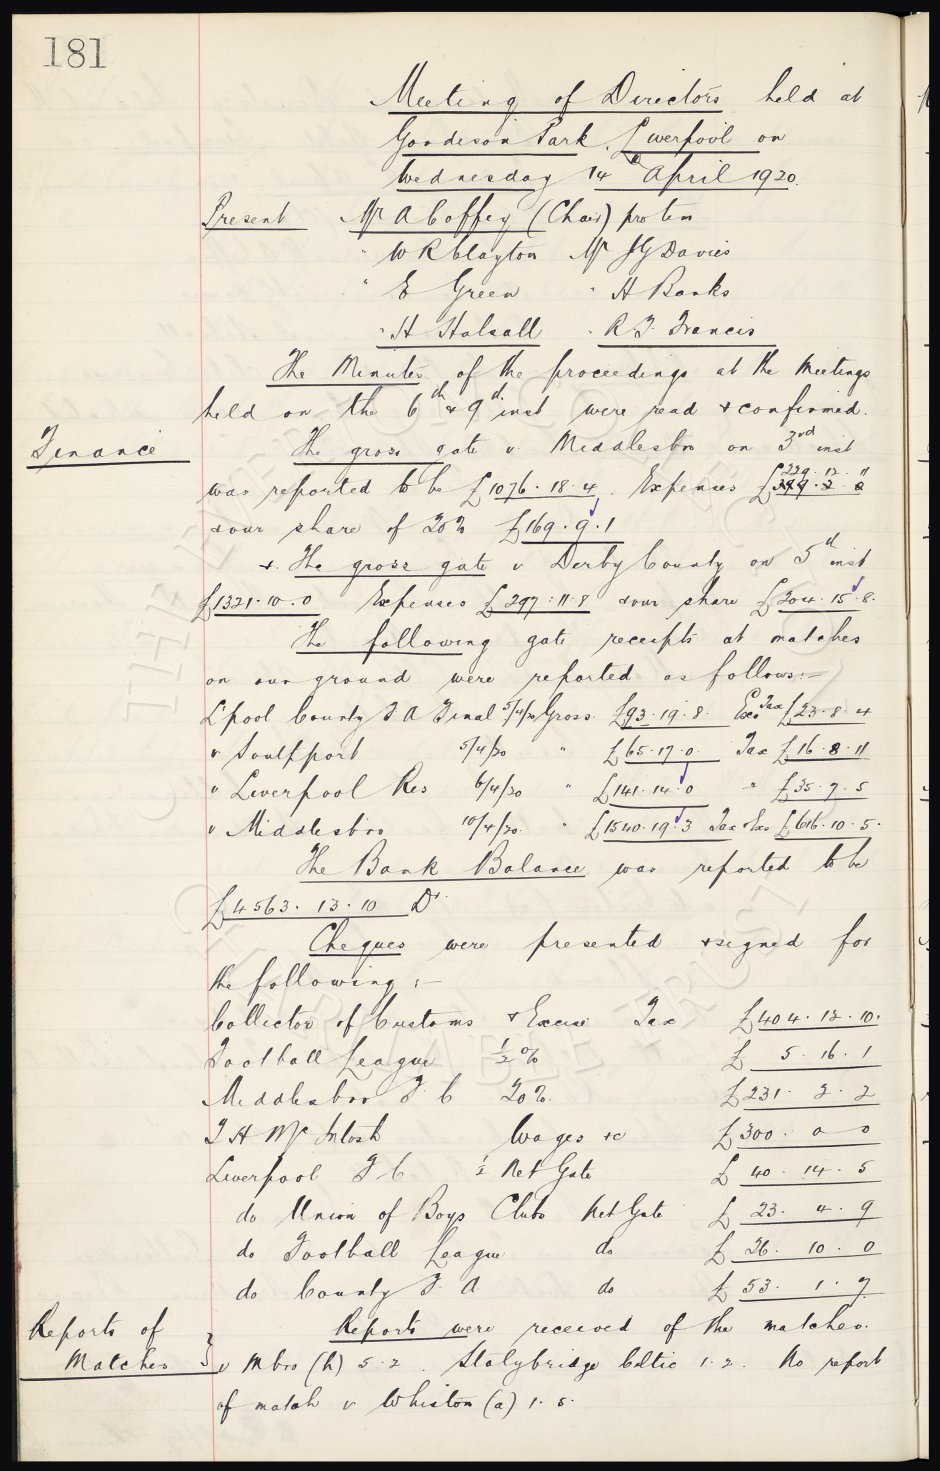 181
Meeting of Directors held at
Goodison Park, Liverpool on
Wednesday 14th April 1920.
Present Mr A Coffey (Chair) pro tem
" W R Clayton Mr J G Davies
" E Green " H Banks
" H Halsall " R T Francis
The Minutes of the proceedings at the Meetings
held on the 6th & 9th inst were read & confirmed.
Finance
The gross gate v. Middlesbro on 3rd inst
was reported to be £1076.18.4. Expenses £229.12.11
& our share of 20% £169.9.1
& The gross gate v Derby County on 5th inst
£1321.10.0 Expenses £297.11.8 & our share £204.15.8.
The following gate receipts at matches
on our ground were reported as follows:-
L'pool County F A Final 5/4/20 Gross £93.19.8. Exs Tax £23.8.4
v Southport 5/4/20 " £65.17.0 Tax £16.8.11
" Liverpool Res 6/4/20 " £141.14.0 " £35.7.5
v Middlesbro 10/4/20. " £1540.19.3 Tax & Exs £616.10.5.
The Bank Balance was reported to be
£4563.13.10 Dr.
Cheques were presented & signed for
the following:-
Collector of Customs & Excise Tax £404.12.10.
Football League ½% £5.16.1
Middlesbro F C 20% £231.2.2
T H McIntosh Wages &c £300.0.0
Liverpool F C ½ Net Gate £40.14.5
do Union of Boys Clubs Net Gate £23.4.9
do Football League do £26.10.0
do County F. A do £53.1.7
Reports of
Matches
Reports were received of the matches.
v Mbro (h) 5.2. Stalybridge Celtic 1.2. No report
of match v Whiston (a) 1.5.